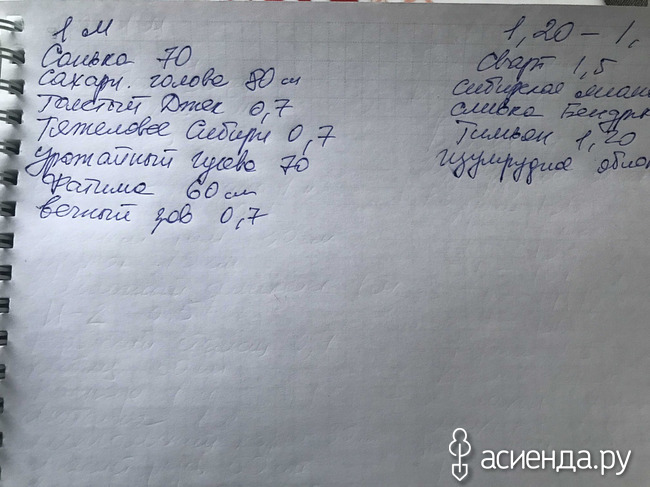 1 м
Санька 70
сахарн. голова 80 см
Толстый Джек 0,7
Тяжеловес Сибири 0,7
Урожайный Гусева 70
Фатима 60 см
вечный зов 0,7
1,20 – 1,
Сварт 1,5
сибирская
сливка Бендр
Тимьон 1,20
изумрудное ябло
асиенда.ру